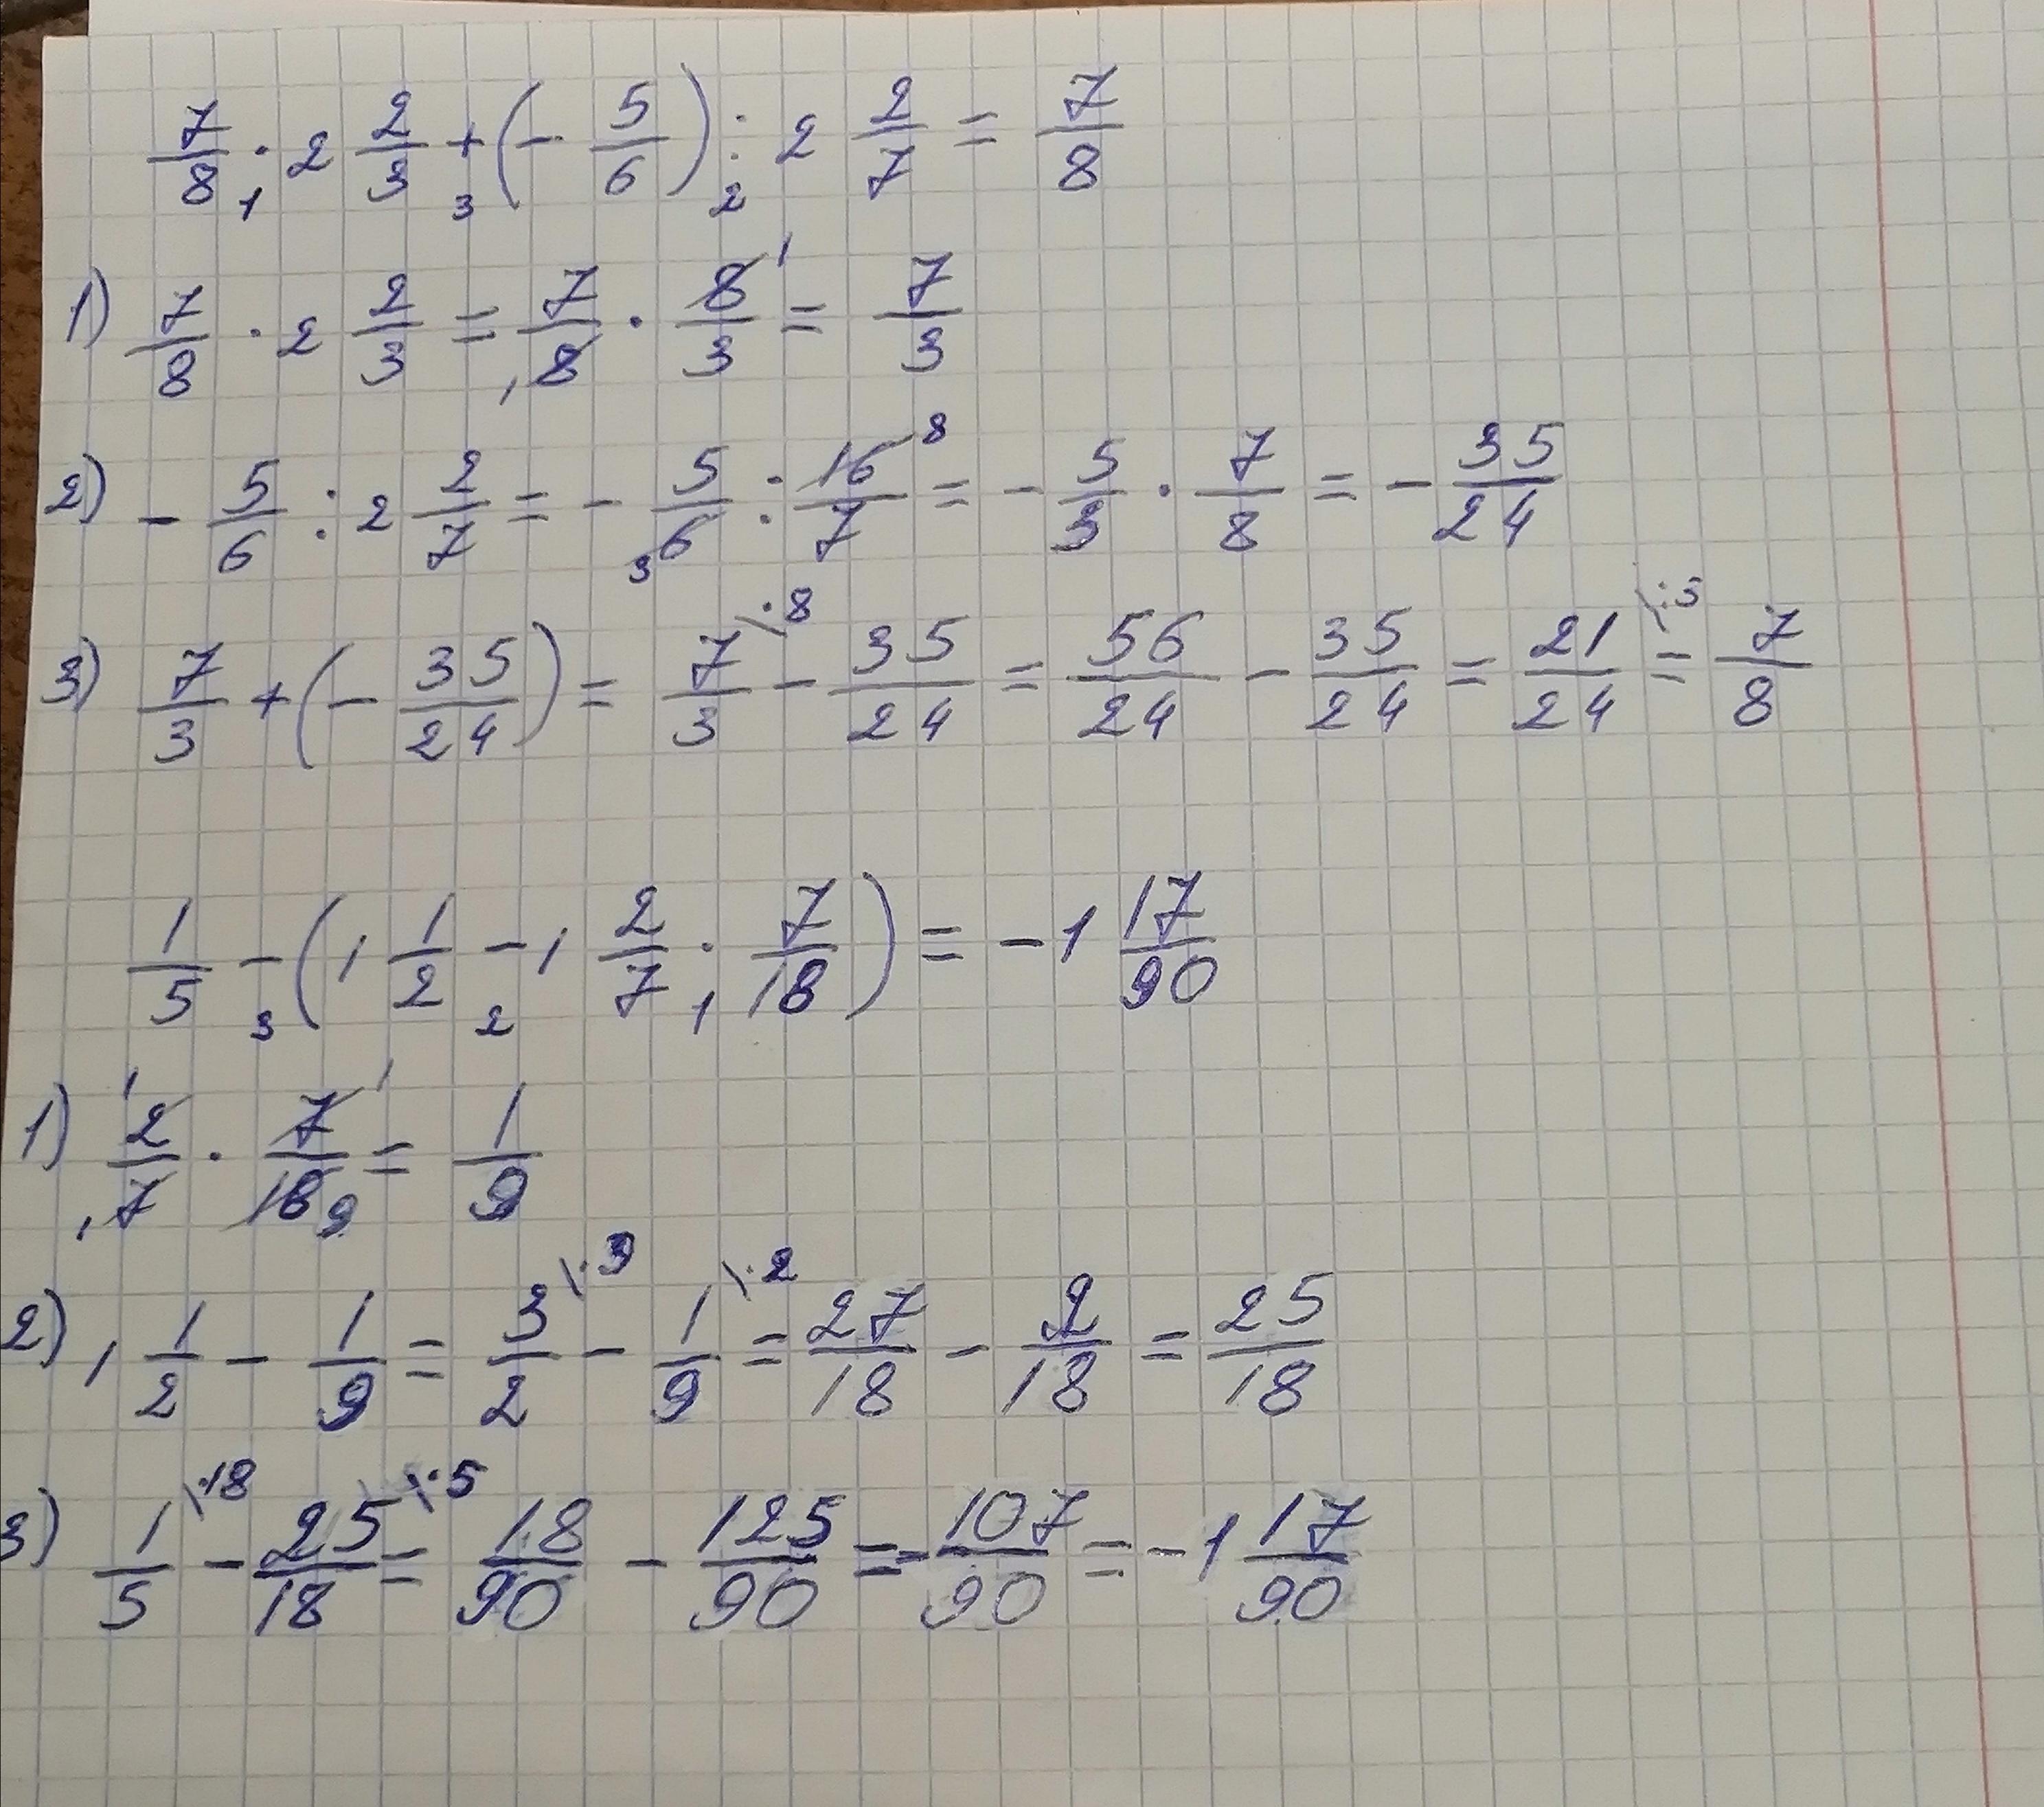 7/8 · 2 2/3 + (- 5/6) : 2 2/7 = 7/8
1 3 2
1) 7/8 · 2 2/3 = 7/8 · 8/3 = 7/3
2) - 5/6 : 2 2/7 = - 5/6 : 16/7 = - 5/3 · 7/8 = - 35/24
3) 7/3 + (- 35/24) = 7/3 \·8 - 35/24 = 56/24 - 35/24 = 21/24 = 7/8
1/5 - (1 1/2 - 1 2/7 · 7/18) = -1 17/90
3 2 1
1) 2/7 · 7/18 = 1/9
2) 1 1/2 - 1/9 = 3/2 \·9 - 1/9 \·2 = 27/18 - 2/18 = 25/18
3) 1/5 \·18 - 25/18 \·5 = 18/90 - 125/90 = - 107/90 = -1 17/90